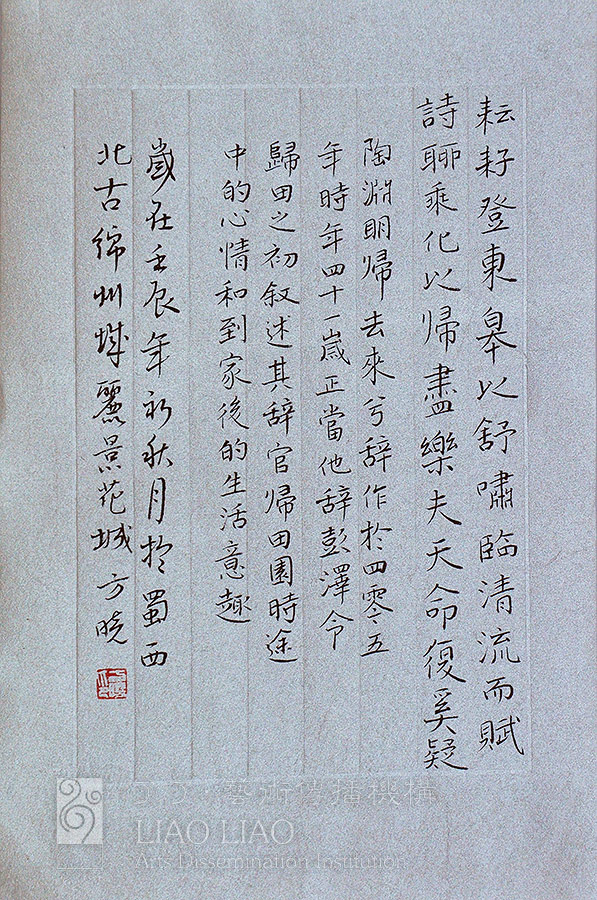 耘耔登東皋以舒嘯臨清流而賦
詩聊乘化以歸盡樂夫天命復奚疑
陶淵明歸去來兮辞作於四零五
年時年四十一嵗正當他辞彭澤令
歸田之初叙述其辞官歸田園時途
中的心情和到家後的生活意趣
嵗在壬辰年初秋月於蜀西
北古綿州城麗景花城方曉
藝術傳播機構
LIAO LIAO
Arts Dissemination Institution